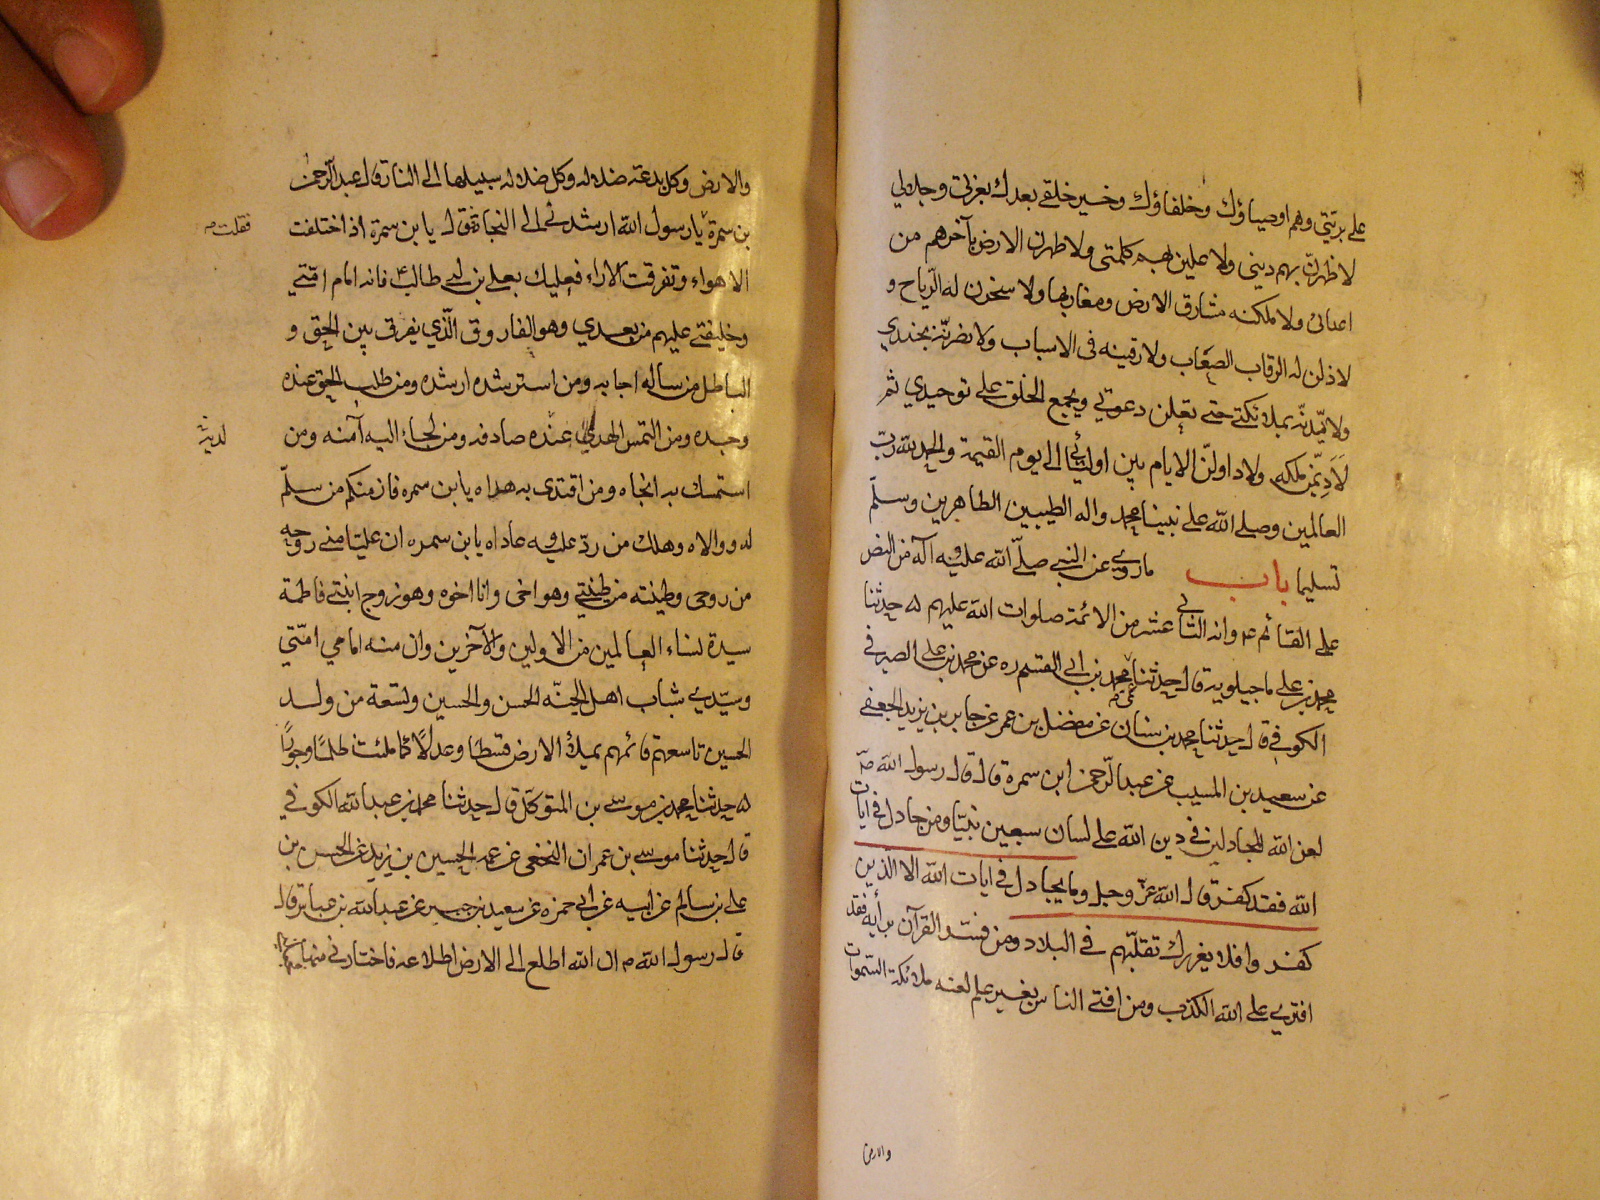 على بريتي وهم اوصياؤك وخلفاؤك وخير خلقي بعدك بعزتي وجلالي
لاظهرنّ بهم ديني ولاعلين بهم كلمتي ولاطهرن الارض بآخرهم من
اعدائى ولاملكنه مشارق الارض ومغاربها ولاسخرن له الرّياح و
لاذلن له الرقاب الصّعاب ولارقينه فى الاسباب ولانصرنّه بجندي
ولامدّنه بملائكتي حتى تعلن دعوتي ويجمع الخلق على توحيدي ثم
لاديمنّ ملكه ولاداولنّ الايام بين اوليائي الى يوم القيمة والحمد لله ربّ
العالمين وصلى الله على نبينا محمد واله الطيبين الطاهرين وسلّم
تسليما باب ما روي عن النبي صلّى الله عليه وآله من النص
على القائم ع وانه الثاني عشر من الائمة صلوات الله عليهم ه حدثنا
محمد بن على ماجيلويه قال حدثنا عمى محمد بن ابى القسم ره عن محمد بن على الصيرفي
الكوفي قال حدثنا محمد بن سنان عن مفضل بن عمر عن جابر بن يزيد الجعفي
عن سعيد بن المسيب عن عبد الرّحمن ابن سمرة قال قال رسول الله ص
لعن الله المجادلين في دين الله على لسان سبعين نبيّا ومن جادل في ايات
الله فقد كفر قال الله عزّ وجل وما يجادل في ايات الله الا الذين
كفروا فلا يغررك تقلّبهم في البلاد ومن فسّر القرآن برأيه فقد
افترى على الله الكذب ومن افتى الناس بغير علم لعنه ملائكة السّموات
والارض
والارض وكل بدعة ضلاله وكل ضلاله سبيلها الى النار قال عبد الرّحمن
بن سمرة يا رسول الله ارشدني الى النجاة فقال يا بن سمرة اذا اختلفت
فقلت
الاهواء وتفرقت الاراء فعليك بعلي بن ابي طالب ع فانه امام امتي
وخليفتي عليهم من بعدي وهو الفاروق الّذي يفرق بين الحق و
الباطل من ساله اجابه ومن استرشده ارشده ومن طلب الحق عنده
وجده ومن التمس الهدى عنده صادفه ومن لجاء اليه آمنه ومن
لديه
استمسك به انجاه ومن اقتدى به هداه يا بن سمره فاز منكم من سلّم
له ووالاه وهلك من ردّ عليه وعاداه يا بن سمره ان عليّا مني روحه
من روحى وطينته من طينتي وهو اخى وانا اخوه وهو زوج ابنتي فاطمة
سيدة نساء العالمين من الاولين والآخرين وان منه امامي امّتي
وسيّدي شباب اهل الجنّه الحسن والحسين وتسعة من ولد
الحسين تاسعهم قائمهم يملأ الارض قسطا وعدلًا كما ملئت ظلمًا وجورًا
ه حدثنا محمد بن موسى بن المتوكّل قال حدثنا محمد بن عبد الله الكوفي
قال حدثنا موسى بن عمران النخعى عن عمه الحسين بن يزيد عن الحسن بن
على بن سالم عن ابيه عن ابى حمزه عن سعيد بن جبير عن عبد الله بن عباس قال
قال رسول الله ص ان الله اطلع الى الارض اطلاعه فاختارني منها